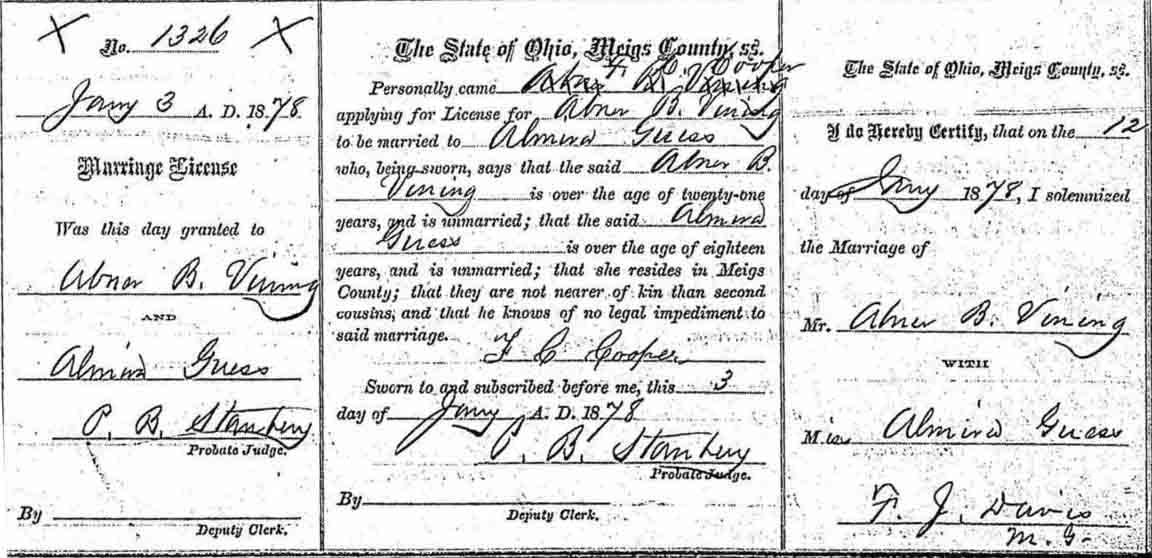 X No. 1326 X
Jany 3 A. D. 1878
Marriage License
Was this day granted to
Abner B. Vining
AND
Almira Guess
P. B. Stanbery
Probate Judge.
By
Deputy Clerk.
The State of Ohio, Meigs County, ss.
Personally came Abner B. Vining F. C. Cooper
applying for License for Abner B. Vining
to be married to Almira Guess
who, being sworn, says that the said Abner B.
Vining is over the age of twenty-one
years, and is unmarried; that the said Almira
Guess is over the age of eighteen
years, and is unmarried; that she resides in Meigs
County; that they are not nearer of kin than second
cousins, and that he knows of no legal impediment to
said marriage. F C Cooper
Sworn to and subscribed before me, this 3
day of Jany A. D. 1878
P. B. Stanbery
Probate Judge.
By
Deputy Clerk.
The State of Ohio, Meigs County, ss.
I do Hereby Certify, that on the 12
day of Jany 1878, I solemnized
the Marriage of
Mr. Abner B. Vining
WITH
Miss Almira Guess
F. J. Davis
M. G.